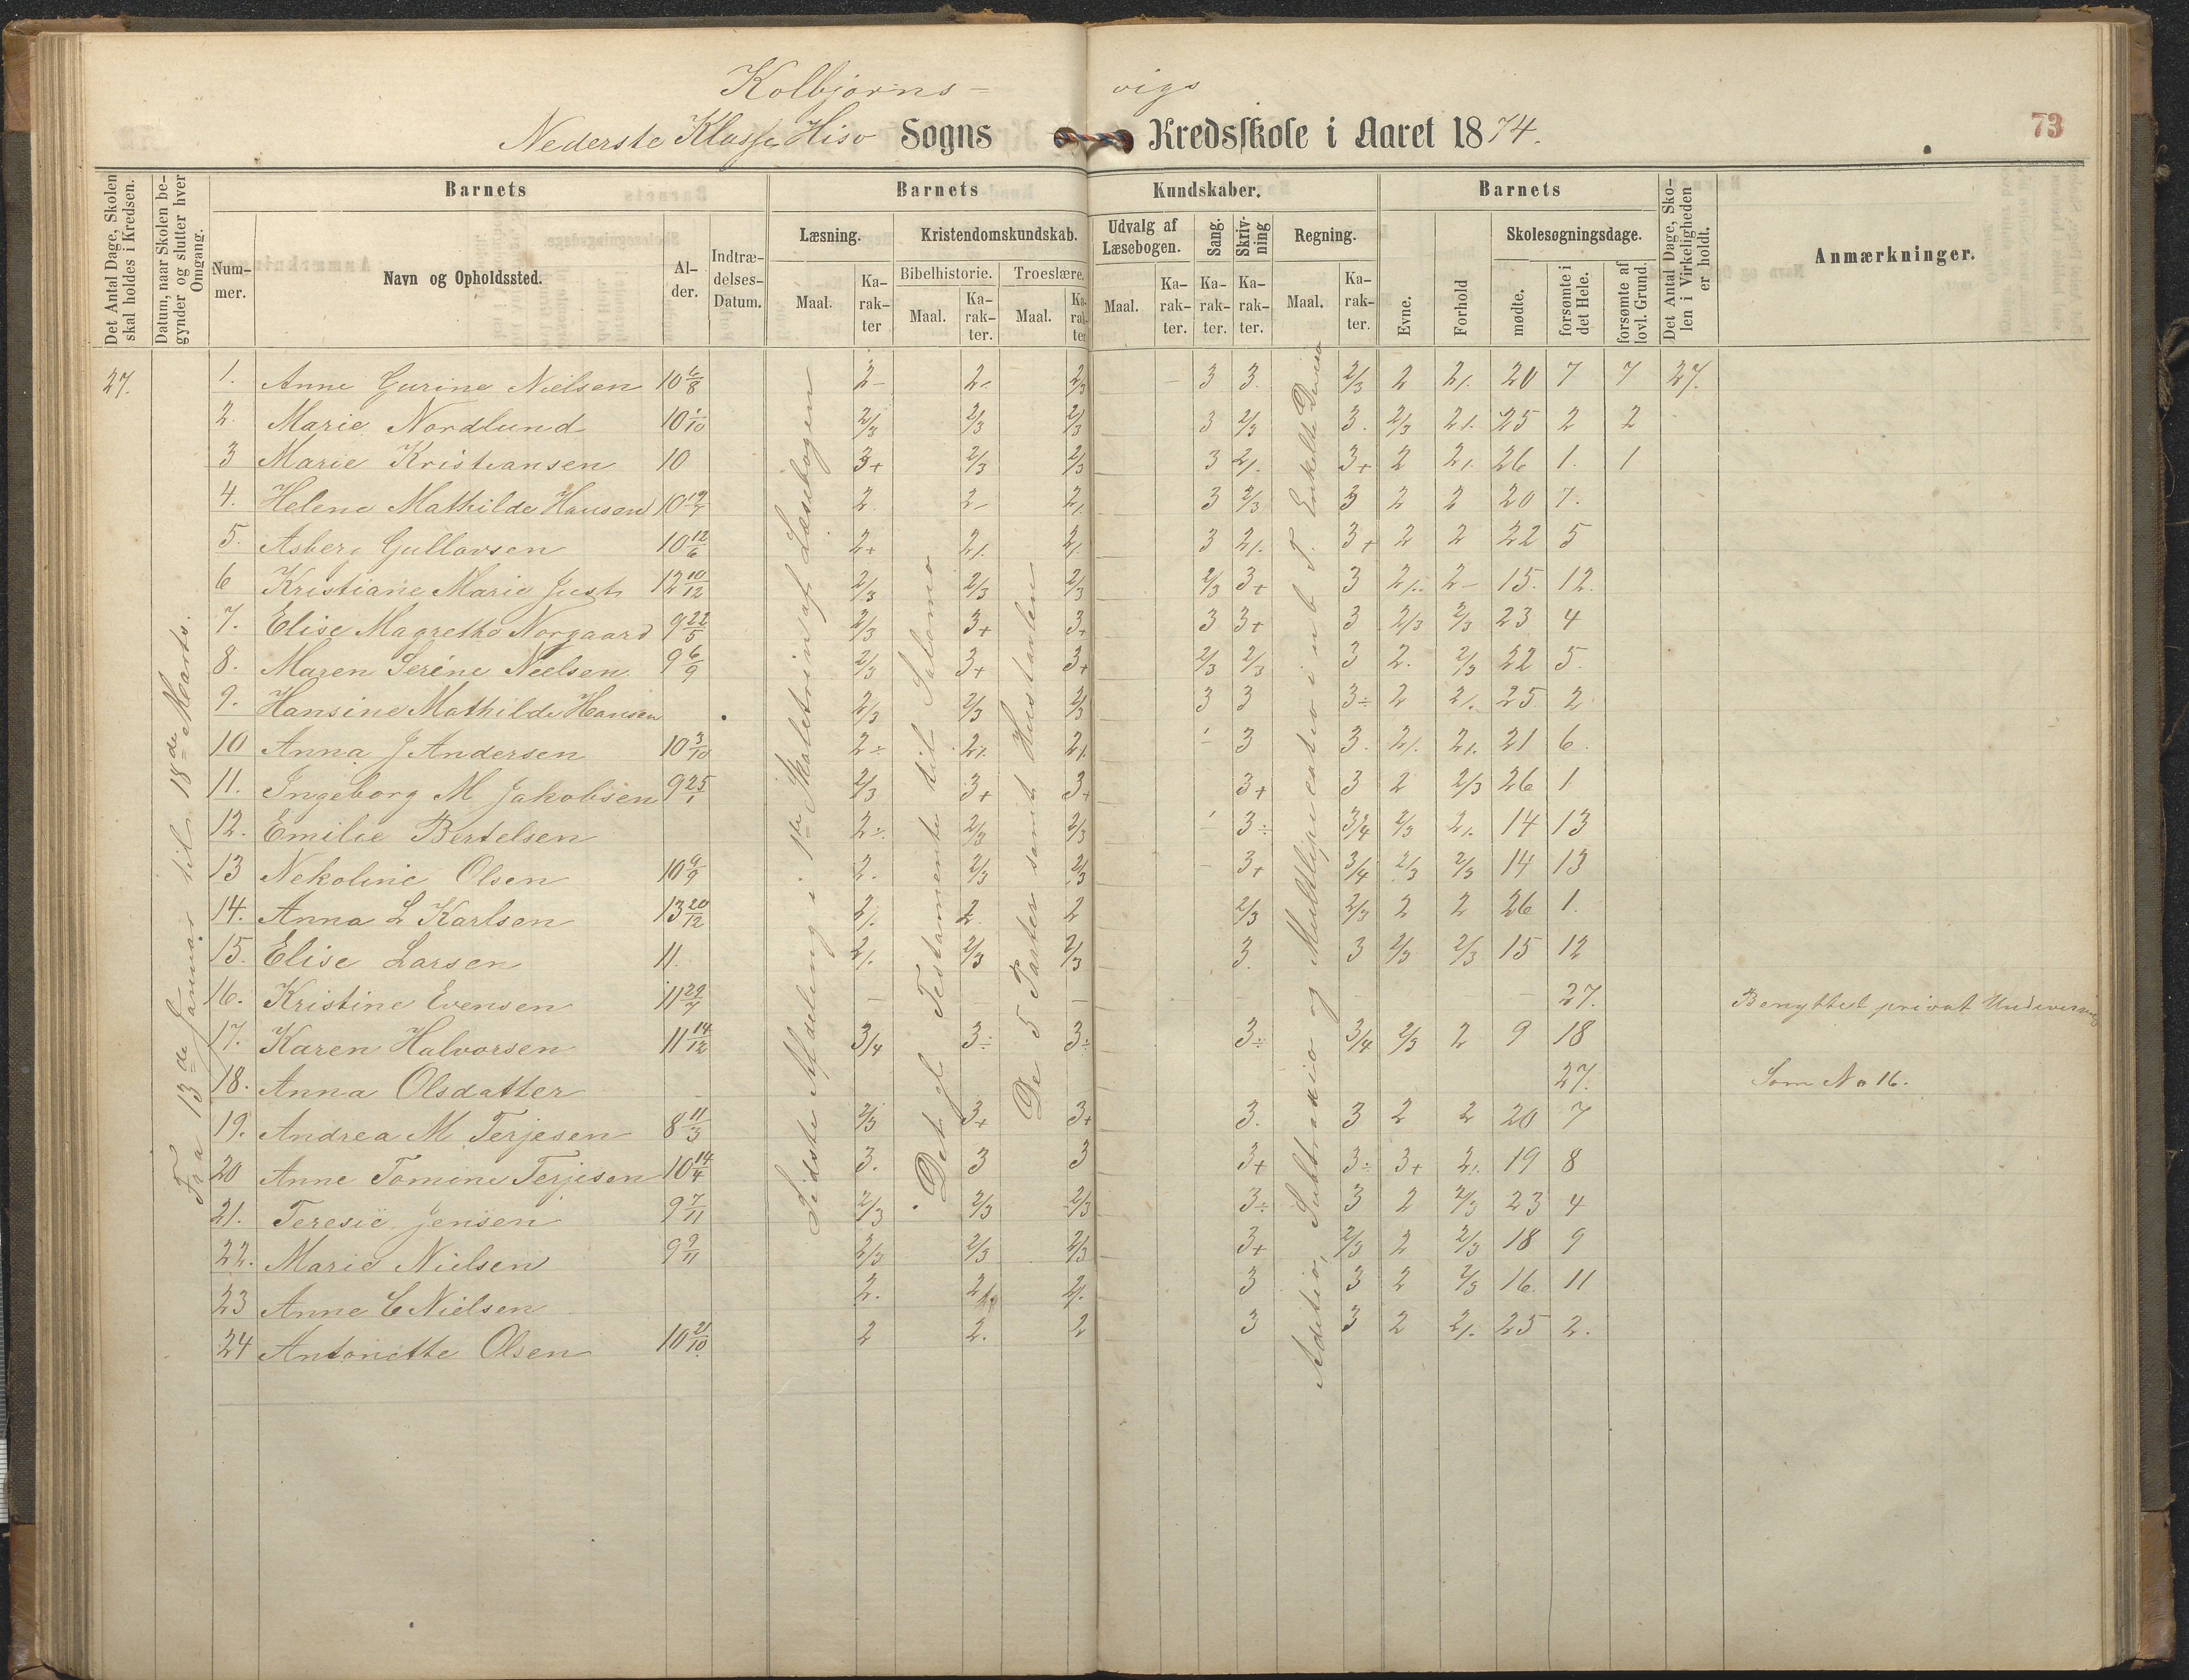 Kolbjørns- vigs
Nederste Klasse Hisø Sogns Kredsskole i Aaret 1874.
73
Det Antal Dage, Skolen skal holdes i Kredsen.
Datum, naar Skolen begynder og slutter hver Omgang.
Barnets
Nummer.
Navn og Opholdssted.
Alder.
Indtrædelses-Datum.
Barnets Kundskaber.
Læsning.
Maal.
Karakter
Kristendomskundskab.
Bibelhistorie.
Maal.
Karakter.
Troeslære.
Maal.
Karakter
Udvalg af Læsebogen.
Maal.
Karakter.
Sang.
Karakter.
Skrivning
Karakter.
Regning.
Maal.
Karakter.
Barnets
Evne.
Forhold
Skolesøgningsdage.
mødte.
forsømte i det Hele.
forsømte af lovl. Grund.
Det Antal Dage, Skolen i Virkeligheden er holdt.
Anmærkninger.
Fra 13de Januar til 18de Marts.
Sidste Afdeling i 1ste Skoletrin af Læsebogen
Det gl Testamente til Salomo
De 5 Parter samt Hustavlen
Addition, Subtraktion og Multiplication i ub. T. Enkelte Division
27. 1. Anne Gurine Nielsen 10 6/8 2- 2- 2/3 - 3 3. 2/3 2 2/. 20 7 7 27.
2. Marie Nordlund 10 1/10 2/3 2/3 2/3 3 2/3 3. 2/3 2/. 25 2 2
3 Marie Kristiansen 10 3+ 2/3 2/3 3 2/. 3+ 2 2/. 26 1. 1
4. Helene Mathilde Hansen 10 19/7 2. 2- 2/. 3 2/3 3 2 2 20 7.
5. Asberg Gullovsen 10 12/6 2+ 2/. 2/. 3 2/. 3+ 2 2 22 5
6 Kristiane Marie Just 12 10/12 2/3 2/3 2/3 2/3 3+ 3 2/. 2- 15. 12.
7. Elise Magrethe Norgaard 9 22/5 2/3 3+ 3+ 3 3+ 3 2/3 2/3 23 4
8. Maren Serine Neelsen 9 6/9 2/3 3+ 3+ 2/3 2/3 3 2. 2/3 22 5.
9. Hansine Mathilde Hansen 2/3 2/3 2/3 3 3 3÷ 2 2/. 25 2
10 Anna J Andersen 10 3/10 2÷ 2/. 2/. - 3 3. 2/. 2/. 21 6.
11. Ingeborg M Jakobsen 9 25/1 2/3 3+ 3+ 3+ 3 2 2/3 26 1
12. Emilie Bertelsen 2÷ 2/3 2/3 - 3÷ 3/4 2/3 2/. 14 13
13 Nekoline Olsen 10 9/9 2. 2/3 2/3 - 3+ 3/4 2/3 2/3 14 13
14. Anna L Karlsen 13 20/12 2/. 2. 2 2/3 2/3 2 2 26 1.
15. Elise Larsen 11. 2/. 2/3 2/3 3. 3 2/3 2/3 15 12
16. Kristine Evensen 11 29/7 - - - - - 27. Benyttet privat Underviisning
17. Karen Halvorsen 11 14/12 3/4 3÷ 3÷ 3÷ 3/4 2/3 2 9 18
18. Anna Olsdatter 27. Som No 16.
19. Andrea M Terjesen 8 11/3 2/3 3+ 3+ 3. 3 2 2 20 7
20 Anne Tomine Terjesen 10 14/4 3. 3 3 3+ 3÷ 3+ 2/. 19 8
21. Teresie Jensen 9 7/11 2/3 2/3 2/3 3÷ 3 2 2/3 23 4
22. Marie Nielsen 9 9/11 2/3 2/3 2/3 3+ 2/3 2 2/3 18 9
23 Anne C Nielsen 2. 2 2/. 3 3 2 2/3 16. 11
24 Antonette Olsen 10 21/10 2 2. 2 3 3 2 2/. 25 2.